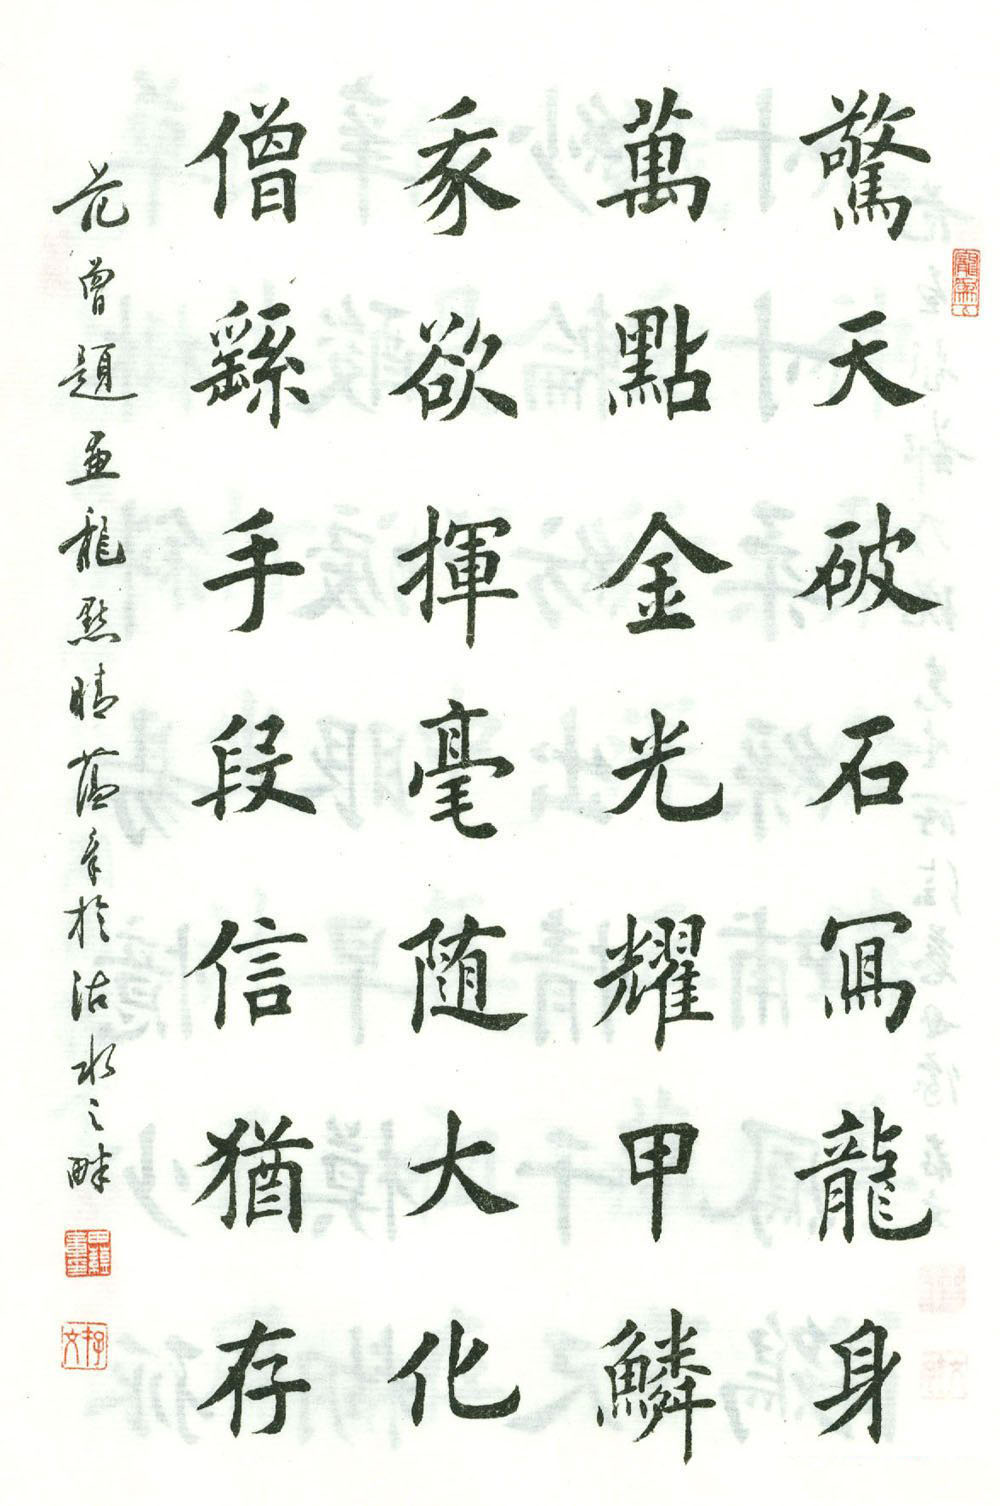 驚天破石冩龍身
萬點金光耀甲鱗
我欲揮毫随大化
僧繇手段信猶存
范曾題画龍點睛蕴章於沽水之畔